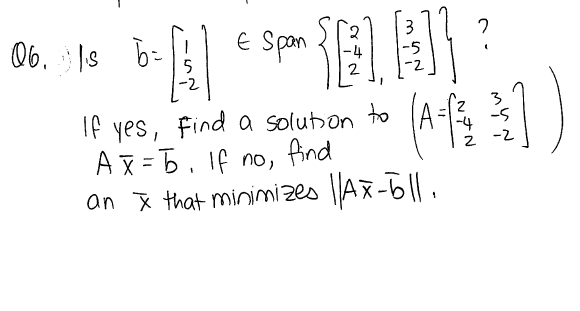 Q6. Is b̄ = [1 5 -2] ∈ Span {[2 -4 2], [3 -5 -2]} ?
If yes, Find a solution to (A = [2 3 -4 -5 2 -2])
A x̄ = b̄. If no, find
an x̄ that minimizes ||Ax̄-b̄||.